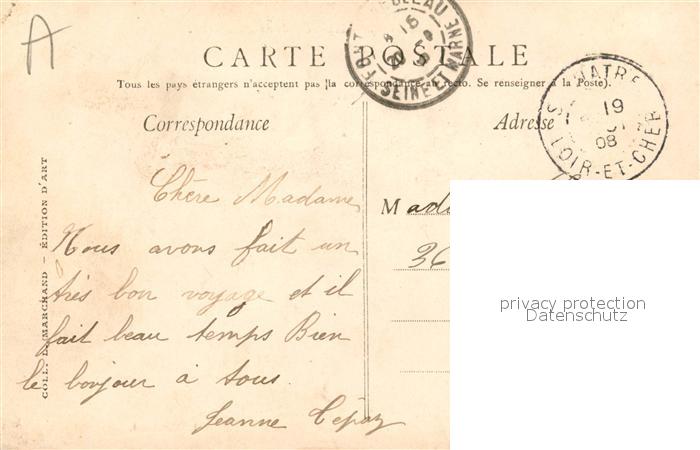 A
CARTE POSTALE
Tous les pays étrangers n'acceptent pas la correspondance au recto. Se renseigner à la Poste).
SEINE ET MARNE
19
08
LOIR-ET-CHER
Correspondance
Adresse
COLL. L. MARCHAND — ÉDITION D'ART
Chère Madame
Nous avons fait un
très bon voyage et il
fait beau temps Bien
le bonjour à tous.
Jeanne
Mad
36
privacy protection
Datenschutz